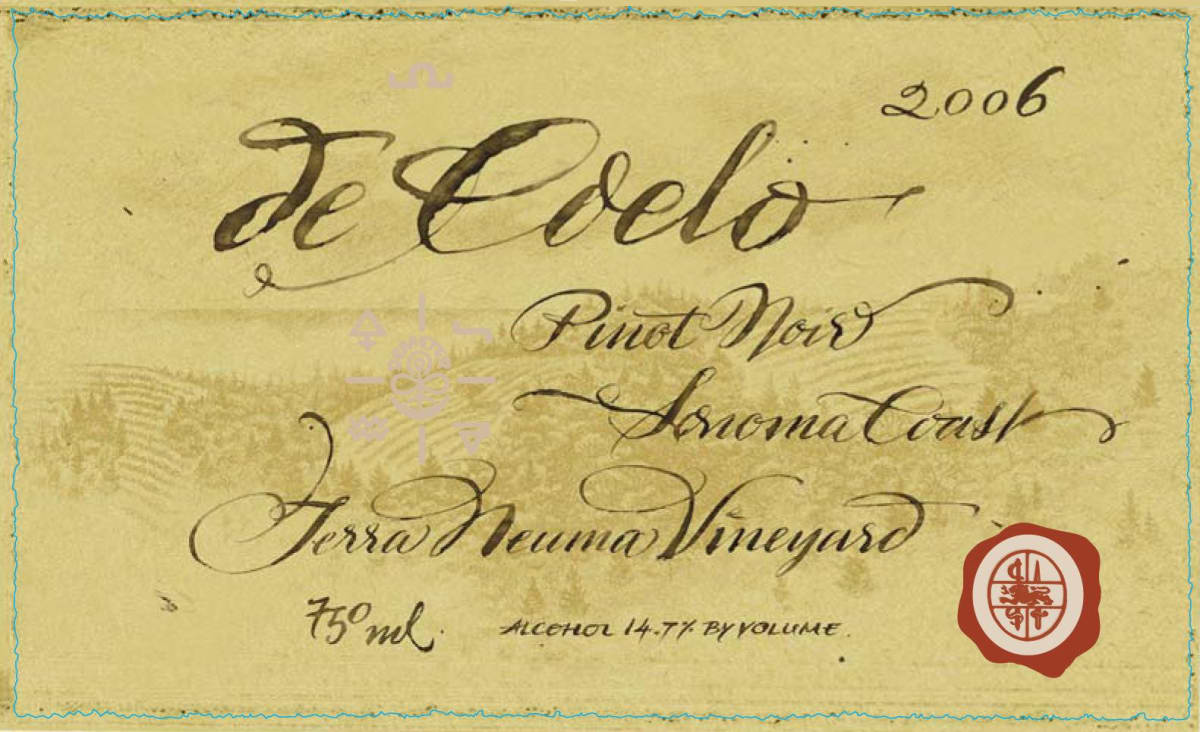 2006
de Coelo
Pinot Noir
Sonoma Coast
Terra Neuma Vineyard
750 ml
ALCOHOL 14.7% BY VOLUME